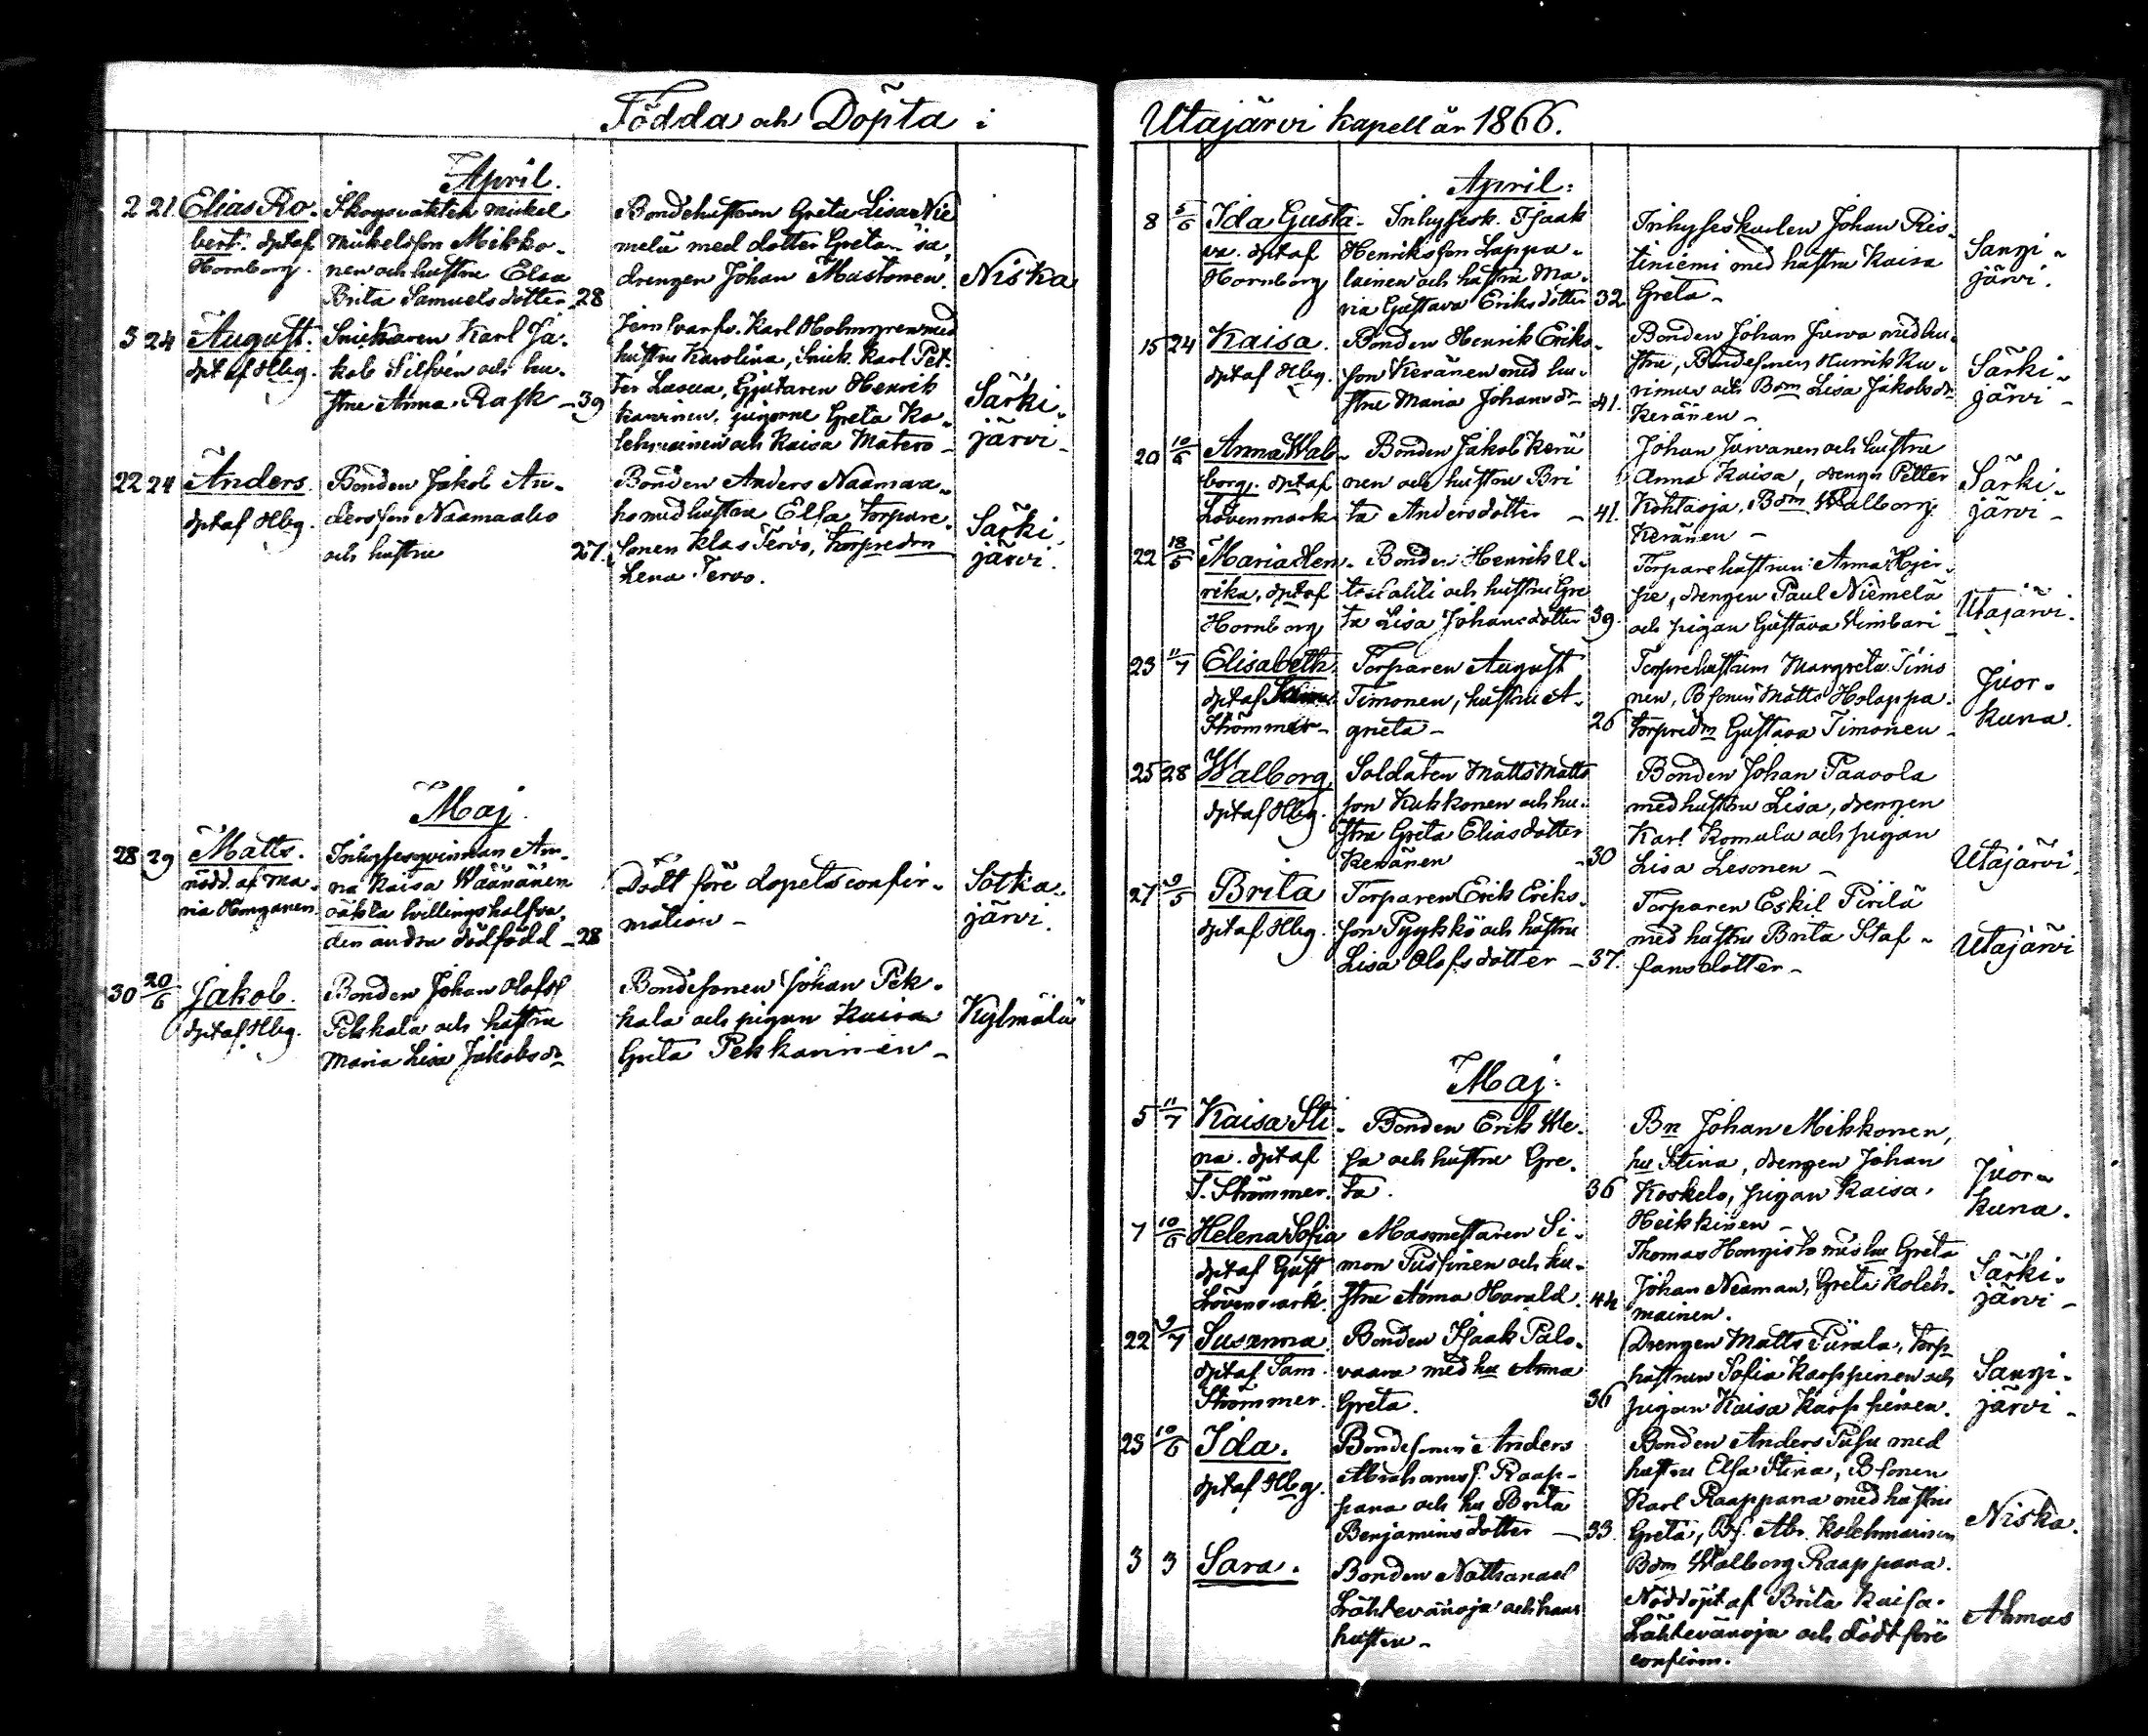 Födda och Döpta i
April.
2 21 Elias Ro-
bert. dpt af
Hornborg.
Skogsvakten Mickel
Mickelsson Mikko-
nen och hustru Elsa
Brita Samuelsdotter - 28
Bondehustrun Greta Lisa Nie
melä med dotter Greta
drengen Johan Mustonen.
Niska
3 24 August.
dpt af Hbg.
Snickaren Karl Ja-
kob Silfvén och hu-
stru Anna Rask - 39
Karl Holmgren med
hustru Karolina, Snick. Karl Pet-
ter Gjutaren Henrik
pigorna Greta Ko-
lehmainen och Kaisa Matero -
Särki-
järvi -
22 24 Anders
dpt af Hbg.
Bonden Jakob An-
dersson Naamaaho
och hustru 27.
Bonden Anders Naamaa-
ho med hustru Elsa torpare-
sonen Klas Tervo, torpredrn
Lena Tervo.
Särki
järvi.
Maj.
28 29 Matts.
nödd. af Ma-
ria Honganen
Inhysesqvinnan An-
na Kaisa Wäänänen
oäkta tvillingshalfva,
den andra dödfödd - 28
Dödt före dopets confir-
mation -
Sotka-
järvi.
30 20/6 Jakob.
dpt af Hbg.
Bonden Johan Olofss
Pekkala och hustru
Maria Lisa Jakobsdr
Bondesonen Johan Pek-
kala och pigan Kaisa
Greta Pekkarinen -
Kylmälä
Utajärvi kapell år 1866.
April.
8 5/6 Ida Gusta-
va. dpt af
Hornborg
Inhysesk. Isaak
Henriksson Lappa-
lainen och hustru Ma-
ria Gustava Eriksdotter 32.
Inhyseskarlen Johan Ris-
tiniemi med hustru Kaisa
Greta -
Sangi-
järvi.
15 24 Kaisa.
dpt af Hbg.
Bonden Henrik Eriks-
son Keränen med hu-
stru Maria Johansdr - 41.
Bonden Johan Jurva med hu-
stru, Bondesonen Henrik Ku-
rimus och Bdm Lisa Jakobsdr
Keränen -
Särki-
järvi -
20 10/6 Anna Wal-
borg. dpt af
Lövenmark
Bonden Jakob Kerä
nen och hustru Bri
ta Andersdotter - 41.
Johan Jurvanen och hustru
Anna Kaisa, drengn Petter
Kohtaoja, Bdm Walborg
Keränen -
Särki-
järvi -
22 18/5 Maria Hen-
rika, dpt af
Hornborg
Bonden Henrik U-
tosalili och hustru Gre
ta Lisa Johansdotter 39.
Torparehustrun Anna
drengen Paul Niemelä
och pigan Gustava Kimbari -
Utajärvi.
23 11/7 Elisabeth.
dpt af
Strömmer -
Torparen August
Timonen, hustru A-
greta - 26
Torprehustrun Margreta Timo
nen, Bsonen Matts Holappa.
torpredm Gustava Timonen -
Juor-
kuna.
25 28 Walborg
dpt af Hbg.
Soldaten Matts Matts
son Kukkonen och hu-
stru Greta Eliasdotter
Keränen - 30
Bonden Johan Paavola
med hustru Lisa, drengen
Karl Komula och pigan
Lisa Lesonen -
Utajärvi.
27 9/5 Brita
dpt af Hbg.
Torparen Erik Eriks-
son Pyykkö och hustru
Lisa Olofsdotter - 37.
Torparen Eskil Piirilä
med hustru Brita Staf-
fansdotter -
Utajärvi
Maj.
5 11/7 Kaisa Sti-
na. dpt af
S. Strömmer.
Bonden Erik We-
sa och hustru Gre-
ta. 36
Bn Johan Mikkonen,
hu Stina, drengen Johan
Koskelo, pigan Kaisa.
Heikkinen -
Juor-
kuna.
7 10/6 Helena Sofia
dpt af Gust
Lövenmark.
Masmestaren Si-
mon Pussinen och hu-
stru Anna Harald. 44
Thomas Hongisto med hu Greta
Johan Neaman, Greta Koleh-
mainen.
Särki-
järvi -
22 9/7 Susanna
dpt af Sam.
Strömmer.
Bonden Isaak Palo-
vaara med hu Anna
Greta. 36
Drengen Matts Pürala, torp
hustrun Sofia Karppinen och
pigan Kaisa Karppinen.
Sangi-
järvi -
23 10/6 Ida.
dpt af Hbg.
Bondesonen Anders
Abrahamss. Raap-
pana och hu Brita
Benjaminsdotter - 33.
Bonden Anders med
hustru Elsa Stina, Bsonen
Karl Raappana med hustru
Greta, Bs. Abr. Kolehmainen
Bdm Walborg Raappana.
Niska.
3 3 Sara.
Bonden Nathanael
Lähtevänoja och hans
hustru -
Nöddöpt af Brita Kaisa.
Lähtevänoja och dödt före
confirm.
Ahmas